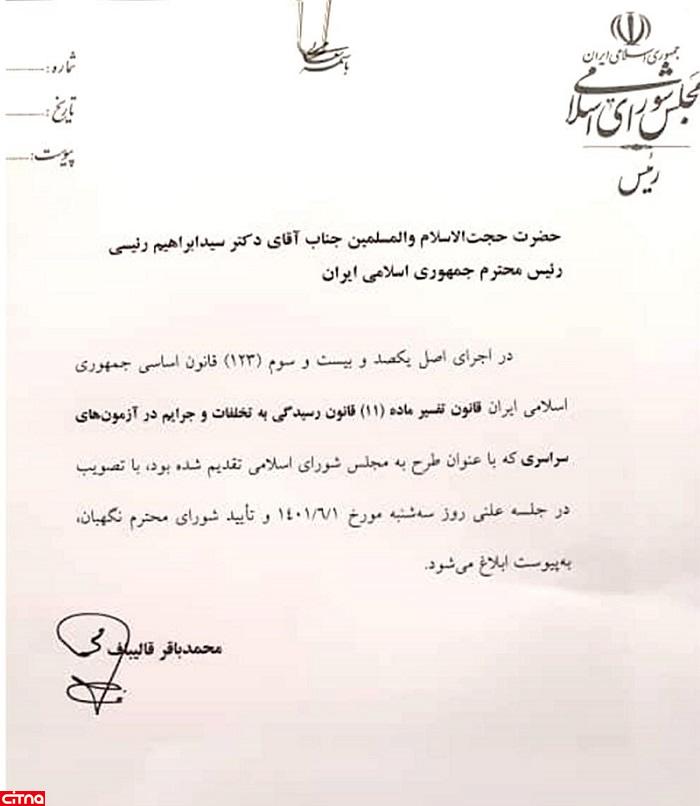 جمهوری اسلامی ایران
مجلس شورای اسلامی
رئیس
باسمه تعالی
شماره:
تاریخ:
پیوست:
حضرت حجت‌الاسلام والمسلمین جناب آقای دکتر سیدابراهیم رئیسی
رئیس محترم جمهوری اسلامی ایران
در اجرای اصل یکصد و بیست و سوم (۱۲۳) قانون اساسی جمهوری
اسلامی ایران قانون تفسیر ماده (۱۱) قانون رسیدگی به تخلفات و جرایم در آزمون‌های
سراسری که با عنوان طرح به مجلس شورای اسلامی تقدیم شده بود، با تصویب
در جلسه علنی روز سه‌شنبه مورخ ۱۴۰۱/۶/۱ و تأیید شورای محترم نگهبان،
به‌پیوست ابلاغ می‌شود.
محمدباقر قالیباف
citna